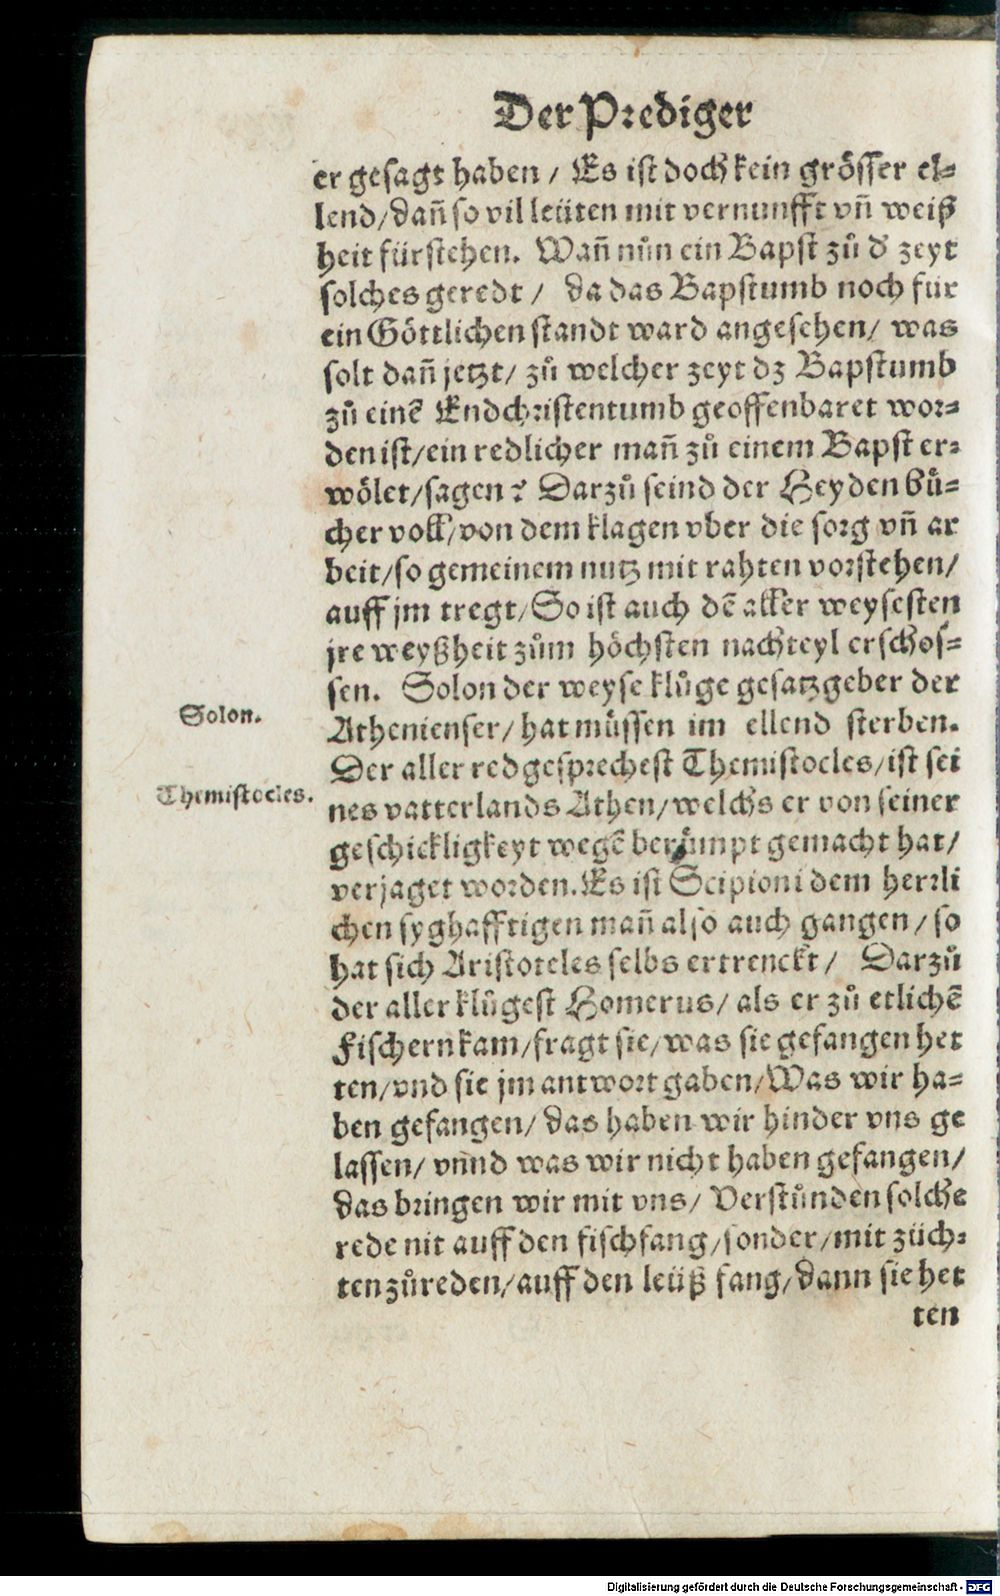 Der Prediger
er gesagt haben / Es ist doch kein grösser el=
lend/dañ so vil leüten mit vernunfft vñ weiß
heit fürstehen. Wañ nůn ein Bapst zů d' zeyt
solches geredt / da das Bapstumb noch für
ein Göttlichen standt ward angesehen/ was
solt dañ jetzt/ zů welcher zeyt dz Bapstumb
zů einē Endchristentumb geoffenbaret wor=
den ist/ein redlicher mañ zů einem Bapst er=
wölet/sagen? Darzů seind der Heyden bů=
cher voll/von dem klagen vber die sorg vñ ar
beit/so gemeinem nutz mit rahten vorstehen/
auff jm tregt/So ist auch dē aller weysesten
jre weyßheit zům höchsten nachteyl erschos=
sen. Solon der weyse klůge gesatzgeber der
Solon.
Athenienser/hat můssen im ellend sterben.
Der aller redgesprechest Themistocles/ist sei
Themistocles.
nes vatterlands Athen/welchs er von seiner
geschickligkeyt wegē berůmpt gemacht hat/
verjaget worden. Es ist Scipioni dem herrli
chen syghafftigen mañ also auch gangen/so
hat sich Aristoteles selbs ertrenckt/ Darzů
der aller klůgest Homerus/ als er zů etlichē
Fischern kam/fragt sie/was sie gefangen het
ten/vnd sie jm antwort gaben/Was wir ha=
ben gefangen/das haben wir hinder vns ge
lassen/ vnnd was wir nicht haben gefangen/
das bringen wir mit vns/ Verstůnden solche
rede nit auff den fischfang/sonder/mit züch=
ten zůreden/auff den leüß fang/dann sie het
ten
Digitalisierung gefördert durch die Deutsche Forschungsgemeinschaft - DFG